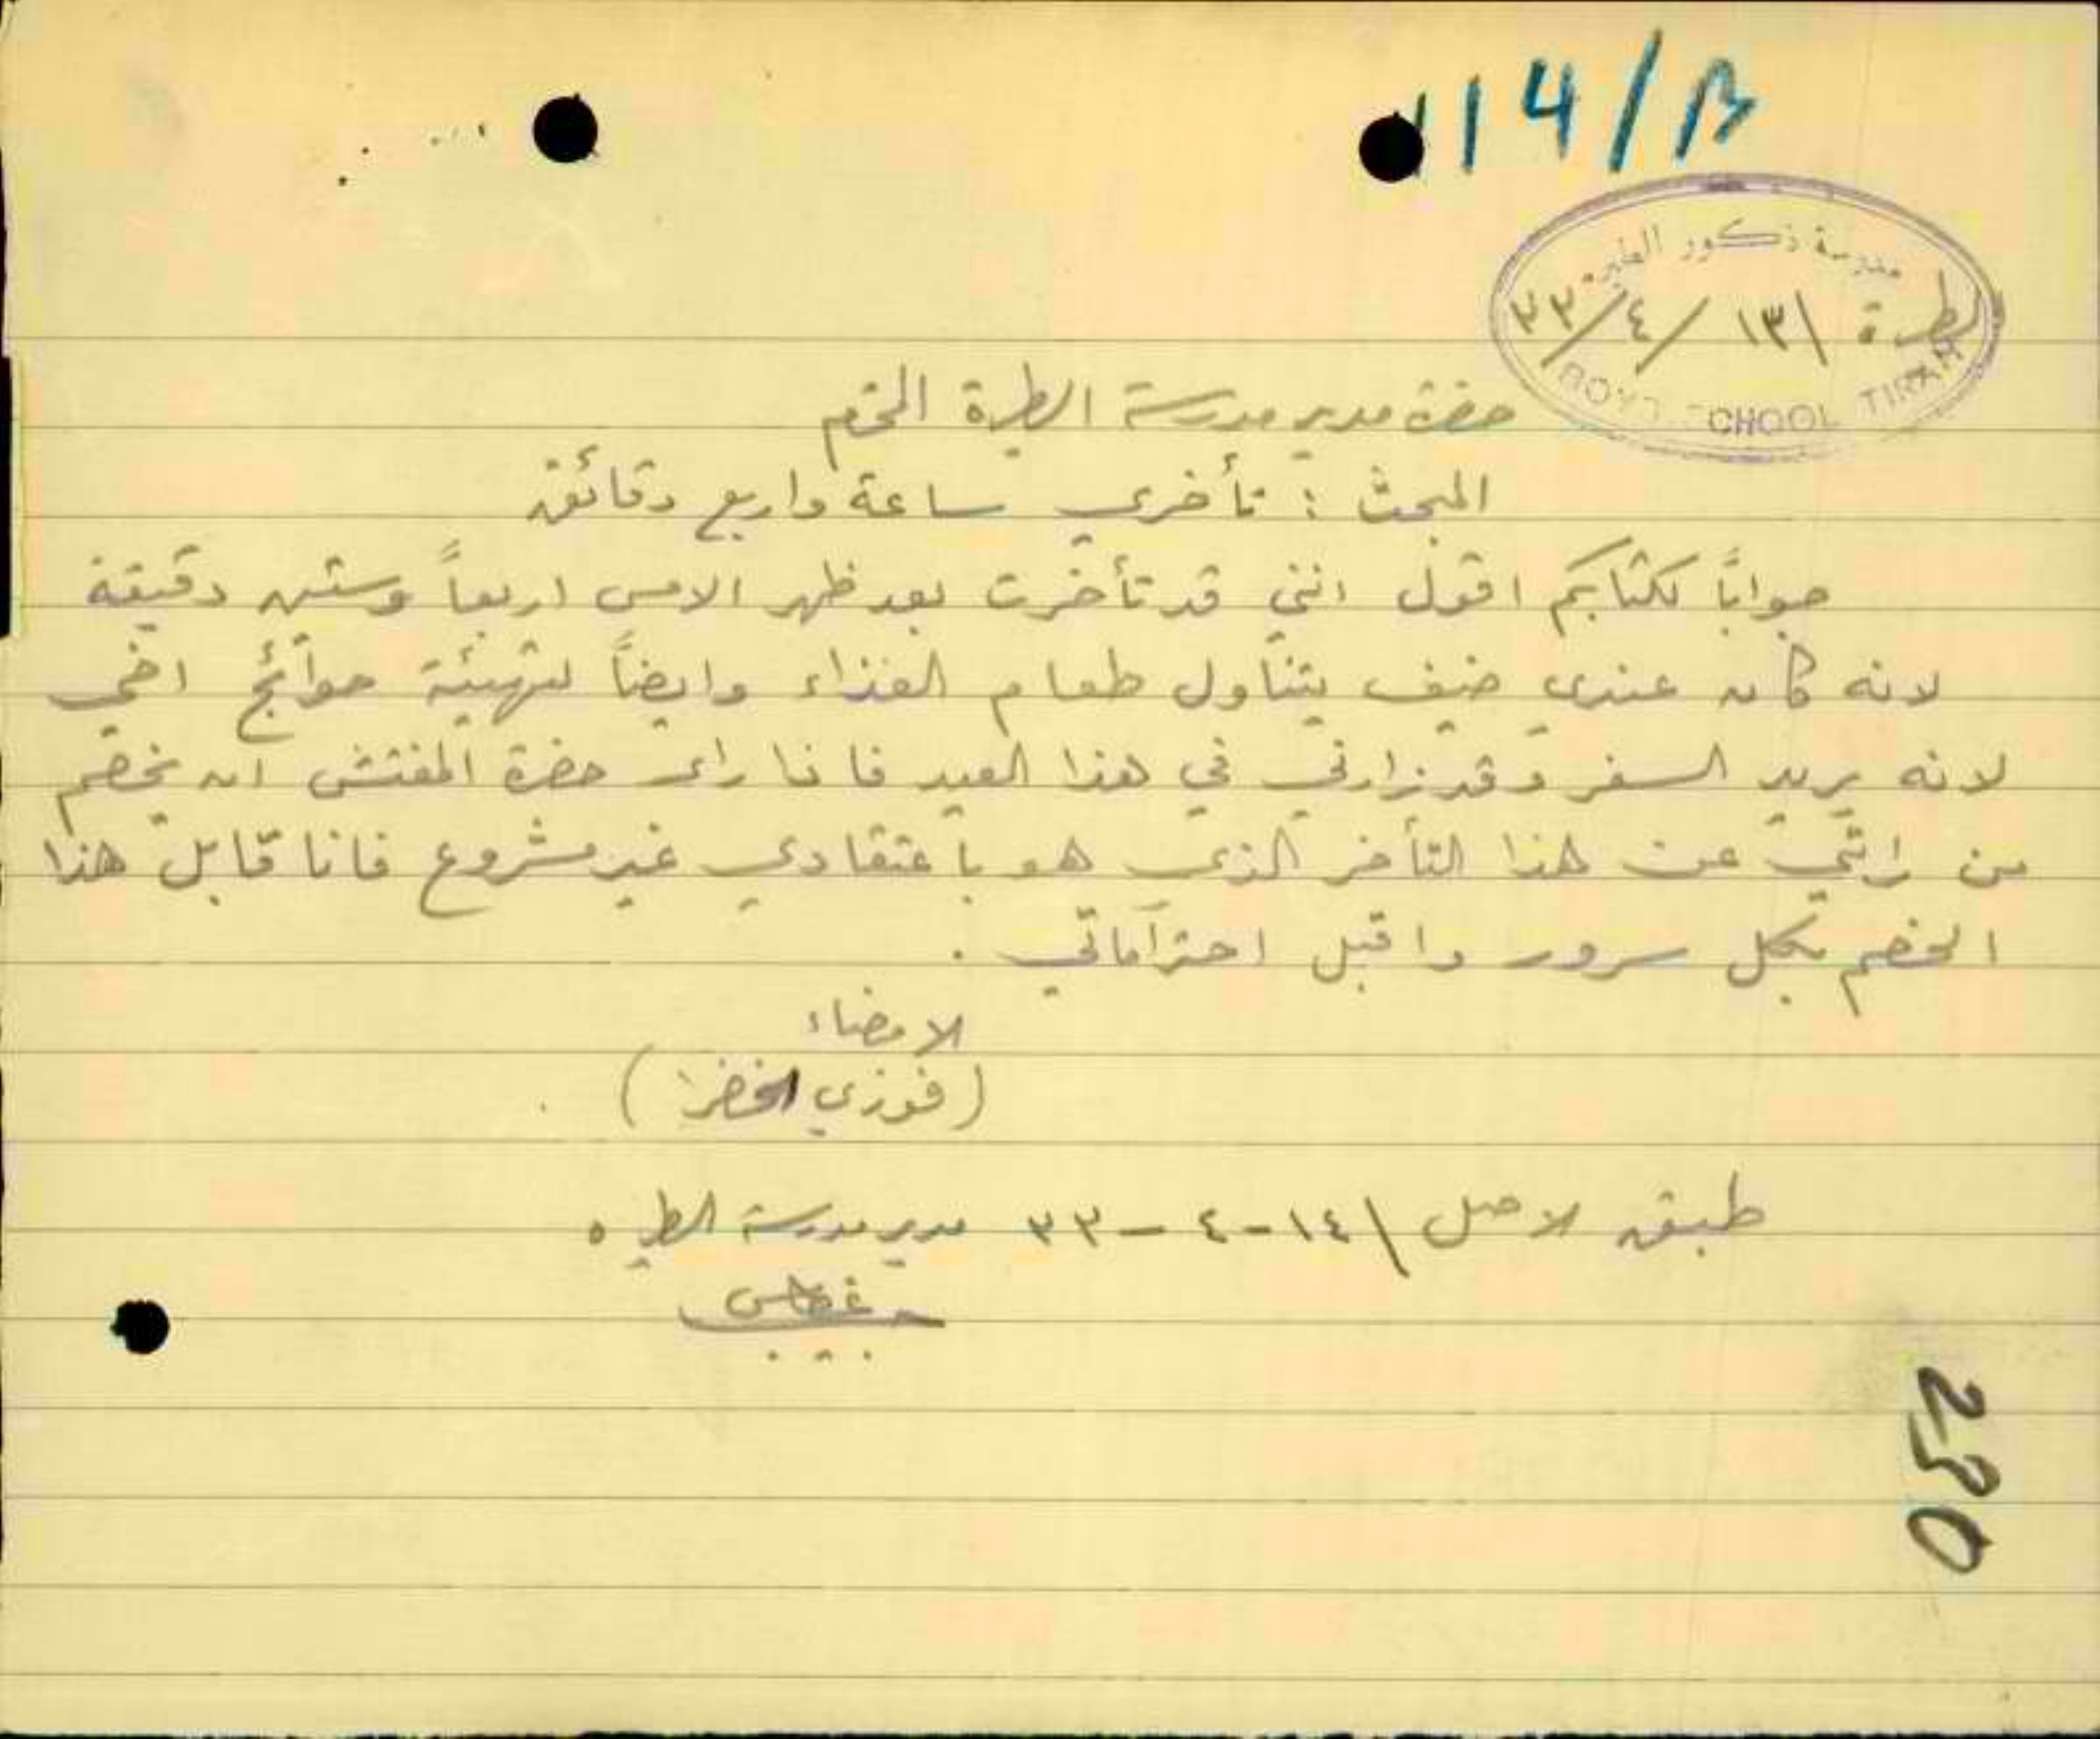 114/B
مدرسة ذكور الطيره
الطيرة ١٣\/٤/٣٣
BOYS SCHOOL TIRAH
حضرة مدير مدرسة الطيرة المحترم
المبحث : تأخري ساعة واربع دقائق
جواباً لكتابكم اقول انني قد تأخرت بعد ظهر الامس اربعاً وستين دقيقة
لانه كان عندي ضيف يتناول طعام الغذاء وايضاً لتهيئة حوائج اخي
لانه يريد السفر وقد زارني في هذا العيد فاذا رأى حضرة المفتش ان يخصم
من راتبي عن هذا التأخر الذي هو باعتقادي غير مشروع فانا قابل هذا
الخصم بكل سرور واقبل احتراماتي .
الامضاء
(فوزي الخضرا)
طبق الاصل \١٤-٤-٣٣ مدير مدرسة الطيره
250